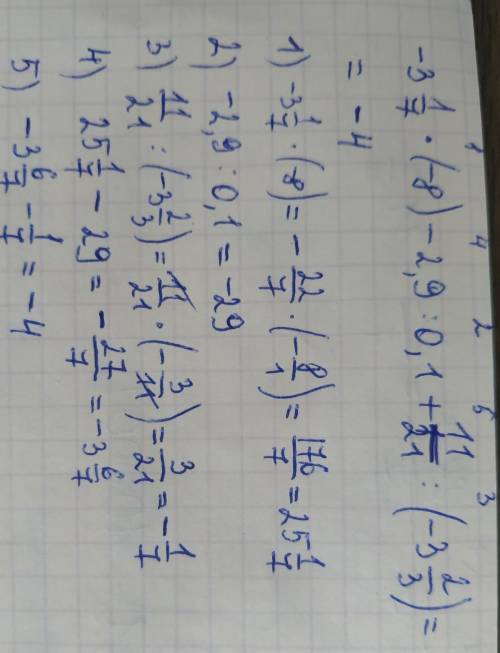 -3 1/7 · (-8) - 2,9 : 0,1 + 11/21 : (-3 2/3) =
1 4 2 5 3
= -4
1) -3 1/7 · (-8) = - 22/7 · (- 8/1) = 176/7 = 25 1/7
2) -2,9 : 0,1 = -29
3) 11/21 : (-3 2/3) = 11/21 · (- 3/11) = 3/21 = - 1/7
4) 25 1/7 - 29 = - 27/7 = -3 6/7
5) -3 6/7 - 1/7 = -4